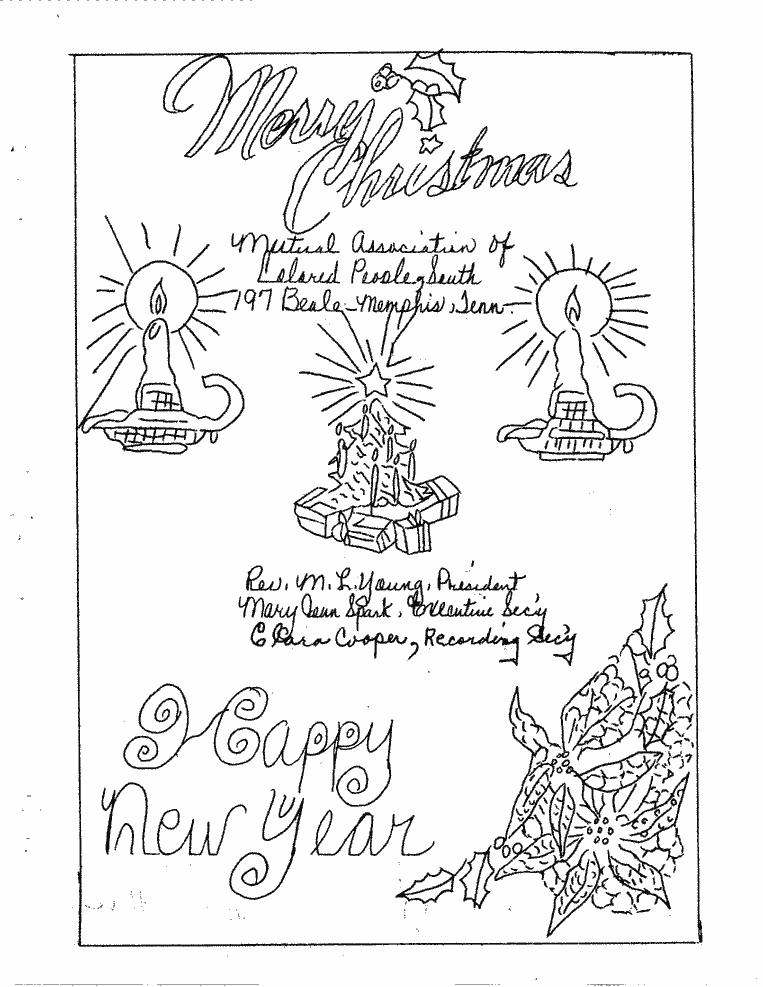 Merry
Christmas
Mutual Association of
Colored People, South
197 Beale - Memphis, Tenn.
Rev. M. L. Young, President
Mary Ann Spark, Executive Sec'y
Clara Cooper, Recording Sec'y
Happy
New Year